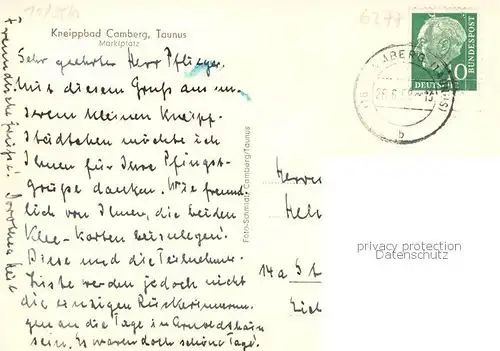 Kneippbad Camberg, Taunus
Marktplatz
6277
Sehr geehrter Herr Pflieger.
Mit diesem Gruß aus un-
serem kleinen Kneipp-
städtchen möchte ich
Ihnen für Ihre Pfingst-
grüße danken. Wie freund-
lich von Ihnen, die beiden
Klee-Karten beizulegen!
Diese und die Teilnehmer-
liste werden jedoch nicht
die einzigen Rückerinnerun-
gen an die Tage in Arnoldshain
sein. Es waren doch schöne Tage!
Freundliche Grüße! Dorothea
Foto-Schmidt, Camberg/Taunus
DEUTSCHE
BUNDESPOST
10
b
Herrn
14a
privacy protection
Datenschutz